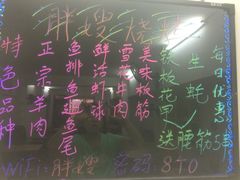 胖嫂烧烤
特色品种
正宗羊肉
鱼排 鱼豆 鱼尾
鲜活虾球
雪花牛肉
美味板筋
铁板花甲
生蚝
送腰筋5串
每日优惠
WiFi:胖嫂 密码:870